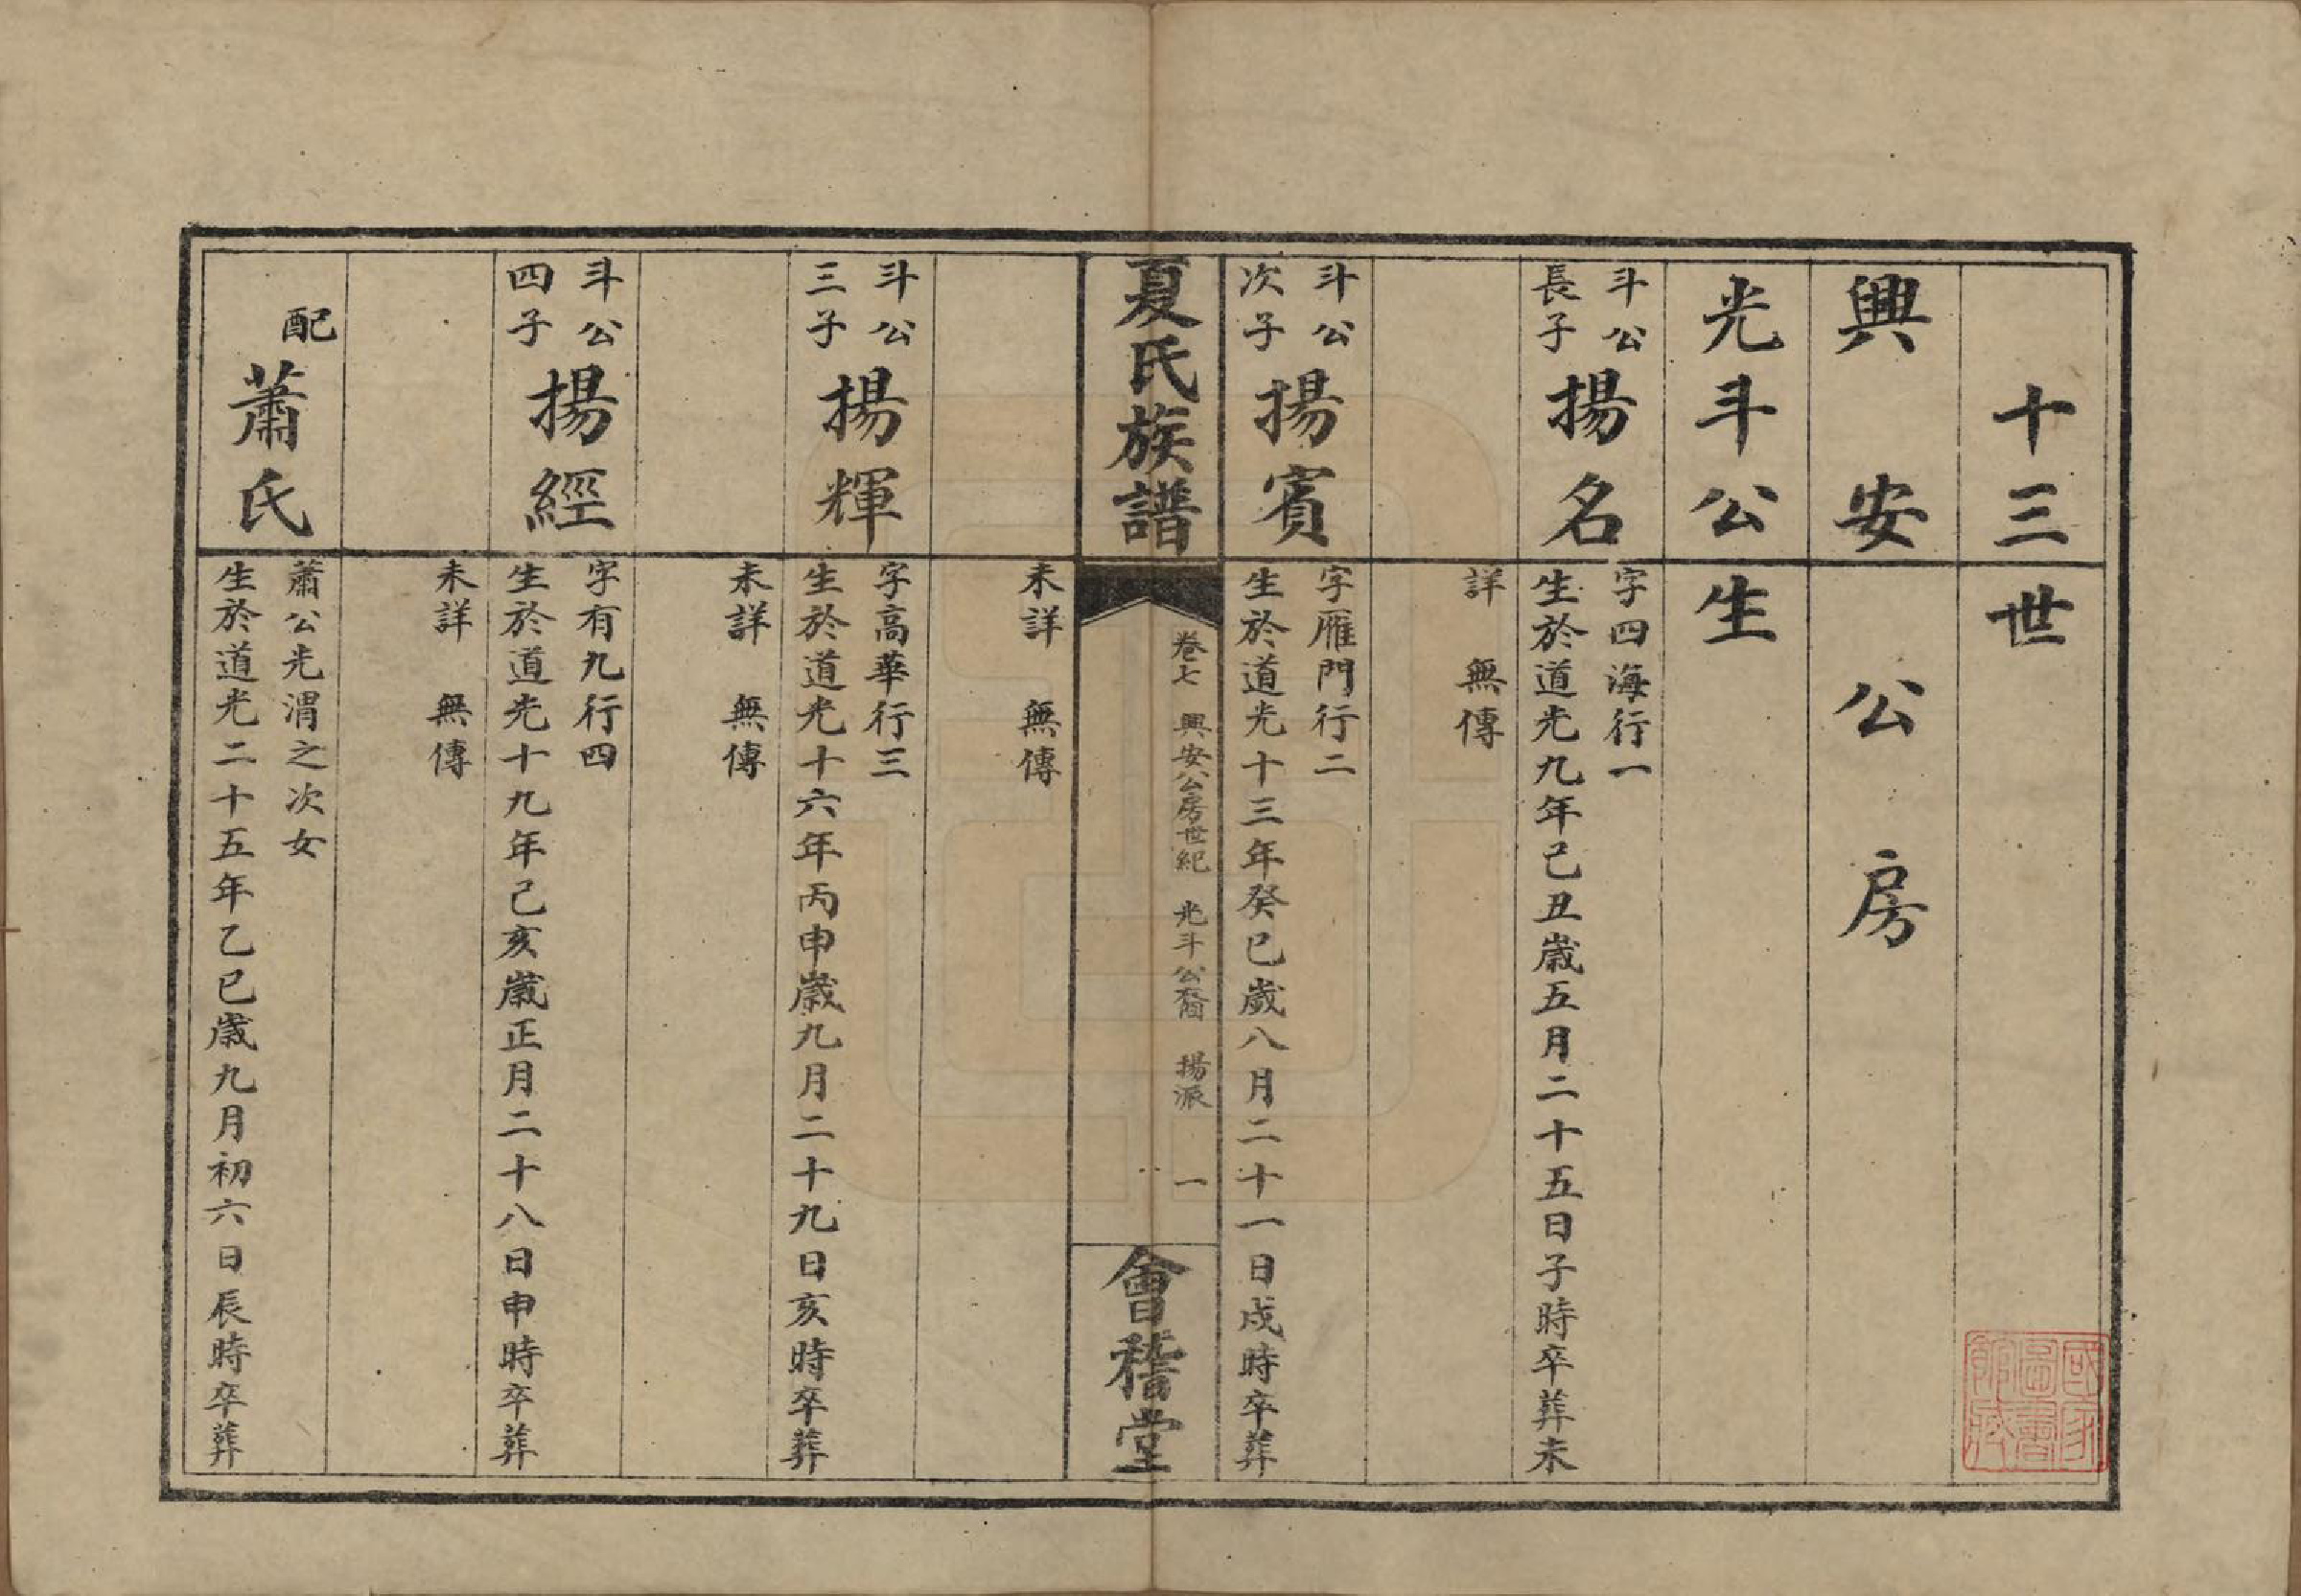 十三世
興安公房
光斗公生
斗公
長子
揚名
字四海行一
生於道光九年己丑歲五月二十五日子時卒葬未
詳 無傳
斗公
次子
揚賓
字雁門行二
生於道光十三年癸巳歲八月二十一日戌時卒葬
夏氏族譜
卷七 興安公房世紀 光斗公裔 揚派 一
會稽堂
未詳 無傳
斗公
三子
揚輝
字高華行三
生於道光十六年丙申歲九月二十九日亥時卒葬
未詳 無傳
斗公
四子
揚經
字有九行四
生於道光十九年己亥歲正月二十八日申時卒葬
未詳 無傳
配
蕭氏
蕭公光渭之次女
生於道光二十五年乙巳歲九月初六日辰時卒葬
國家
圖書
館藏